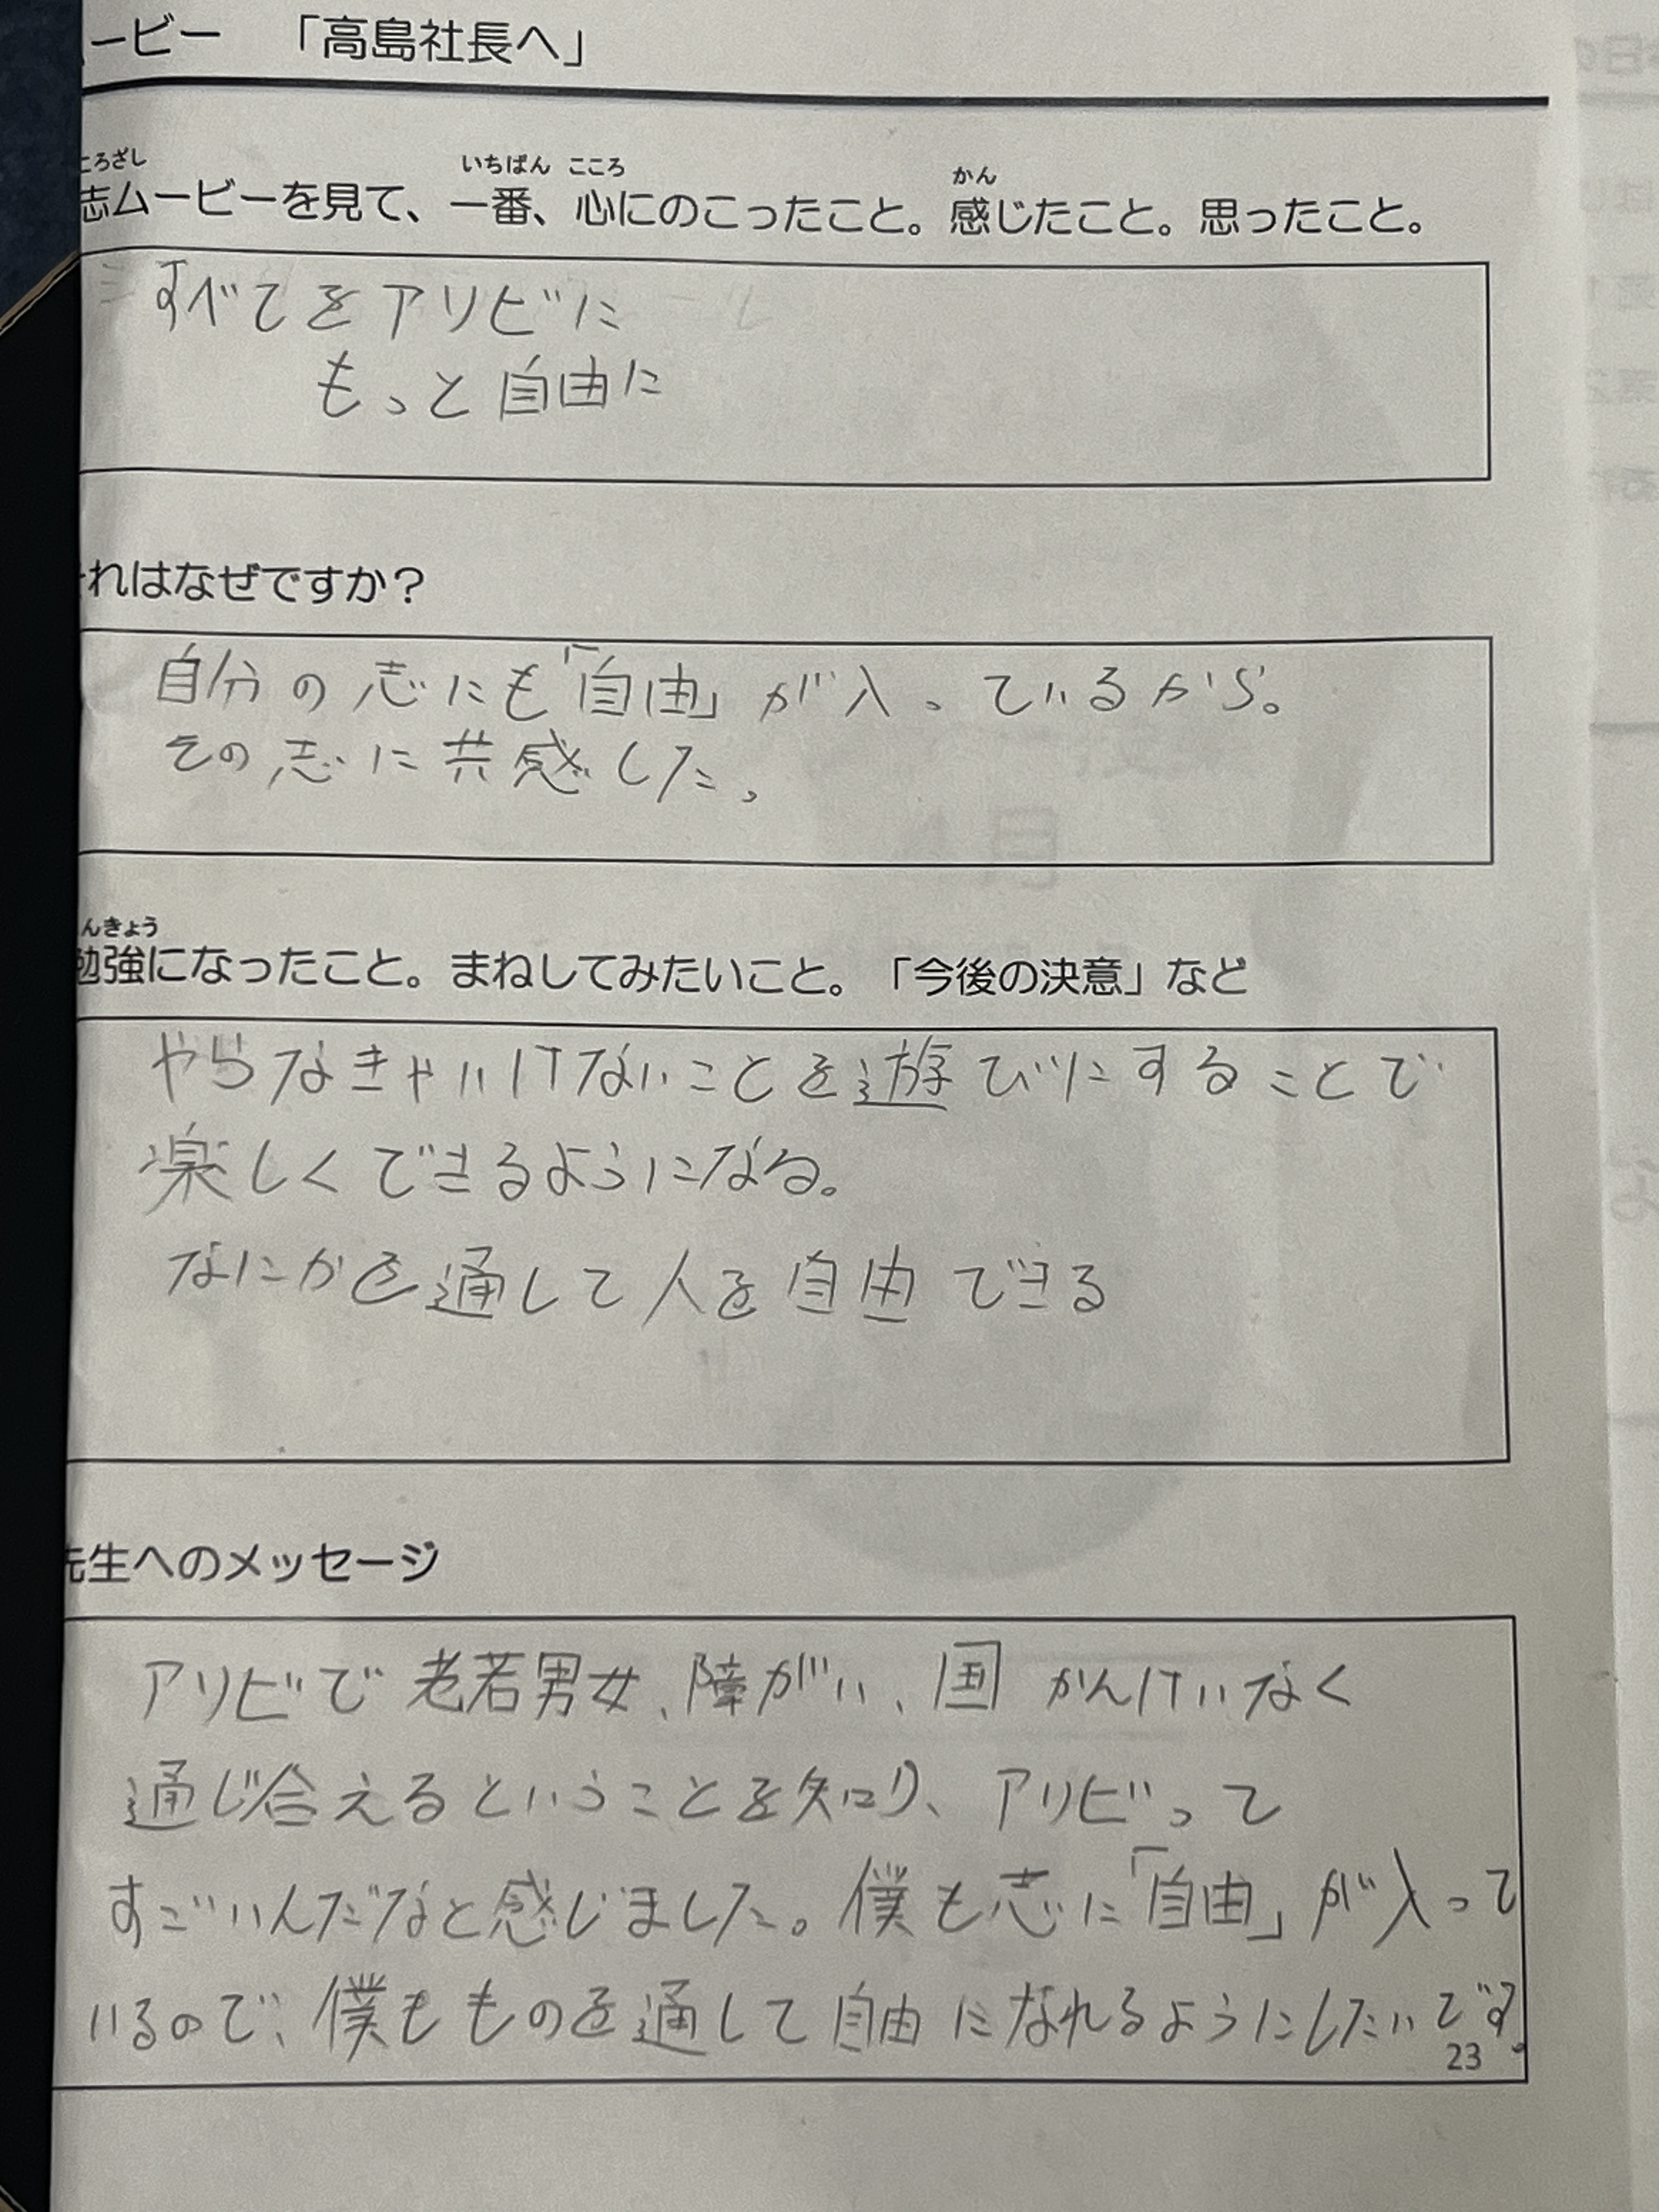 ービー 「高島社長へ」
ころざし いちばん こころ かん
志ムービーを見て、一番、心にのこったこと。感じたこと。思ったこと。
すべてをアソビに
もっと自由に
れはなぜですか？
自分の志にも「自由」が入っているから。
その志に共感した。
んきょう
勉強になったこと。まねしてみたいこと。「今後の決意」など
やらなきゃいけないことを遊びにすることで
楽しくできるようになる。
なにかを通して人を自由できる
先生へのメッセージ
アソビで老若男女、障がい、国かんけいなく
通じ合えるということを知り、アソビって
すごいんだなと感じました。僕も志に「自由」が入って
いるので、僕もものを通して自由になれるようにしたいです。
23